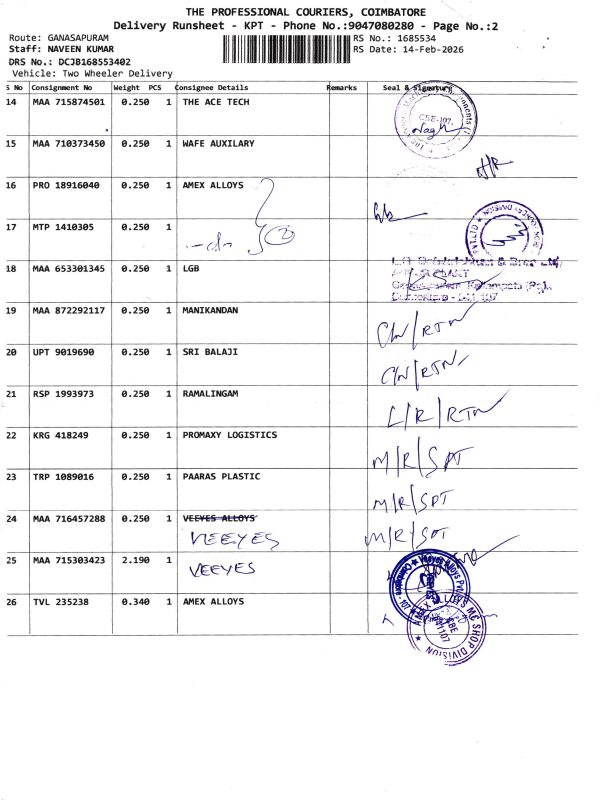 THE PROFESSIONAL COURIERS, COIMBATORE
Delivery Runsheet - KPT - Phone No.:9047080280 - Page No.:2
Route: GANASAPURAM RS No.: 1685534
Staff: NAVEEN KUMAR RS Date: 14-Feb-2026
DRS No.: DCJB168553402
Vehicle: Two Wheeler Delivery
S No Consignment No Weight PCS Consignee Details Remarks Seal & Signature
14 MAA 715874501 0.250 1 THE ACE TECH
15 MAA 710373450 0.250 1 WAFE AUXILARY
16 PRO 18916040 0.250 1 AMEX ALLOYS
17 MTP 1410305 0.250 1 -do- 2
18 MAA 653301345 0.250 1 LGB
19 MAA 872292117 0.250 1 MANIKANDAN C/N/RTN
20 UPT 9019690 0.250 1 SRI BALAJI C/N/RTN
21 RSP 1993973 0.250 1 RAMALINGAM L/R/RTN
22 KRG 418249 0.250 1 PROMAXY LOGISTICS M/R/SPT
23 TRP 1089016 0.250 1 PAARAS PLASTIC M/R/SPT
24 MAA 716457288 0.250 1 VEEYES ALLOYS M/R/SPT
VEEYES
25 MAA 715303423 2.190 1 VEEYES
26 TVL 235238 0.340 1 AMEX ALLOYS
MC SHOP DIVISION